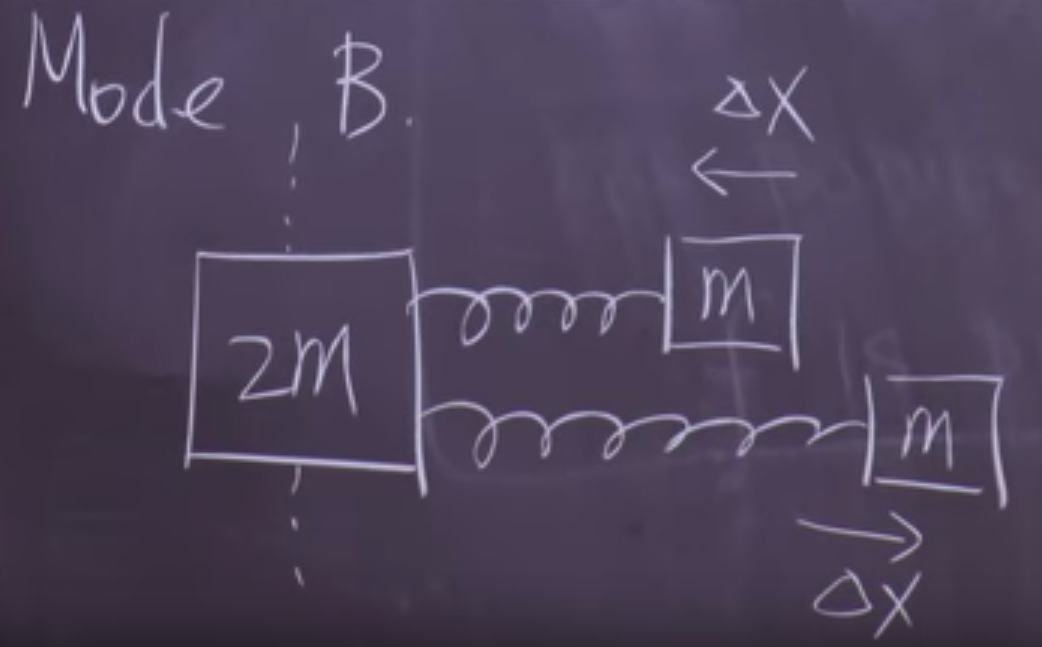 Mode B.
ΔX
2m
m
m
ΔX